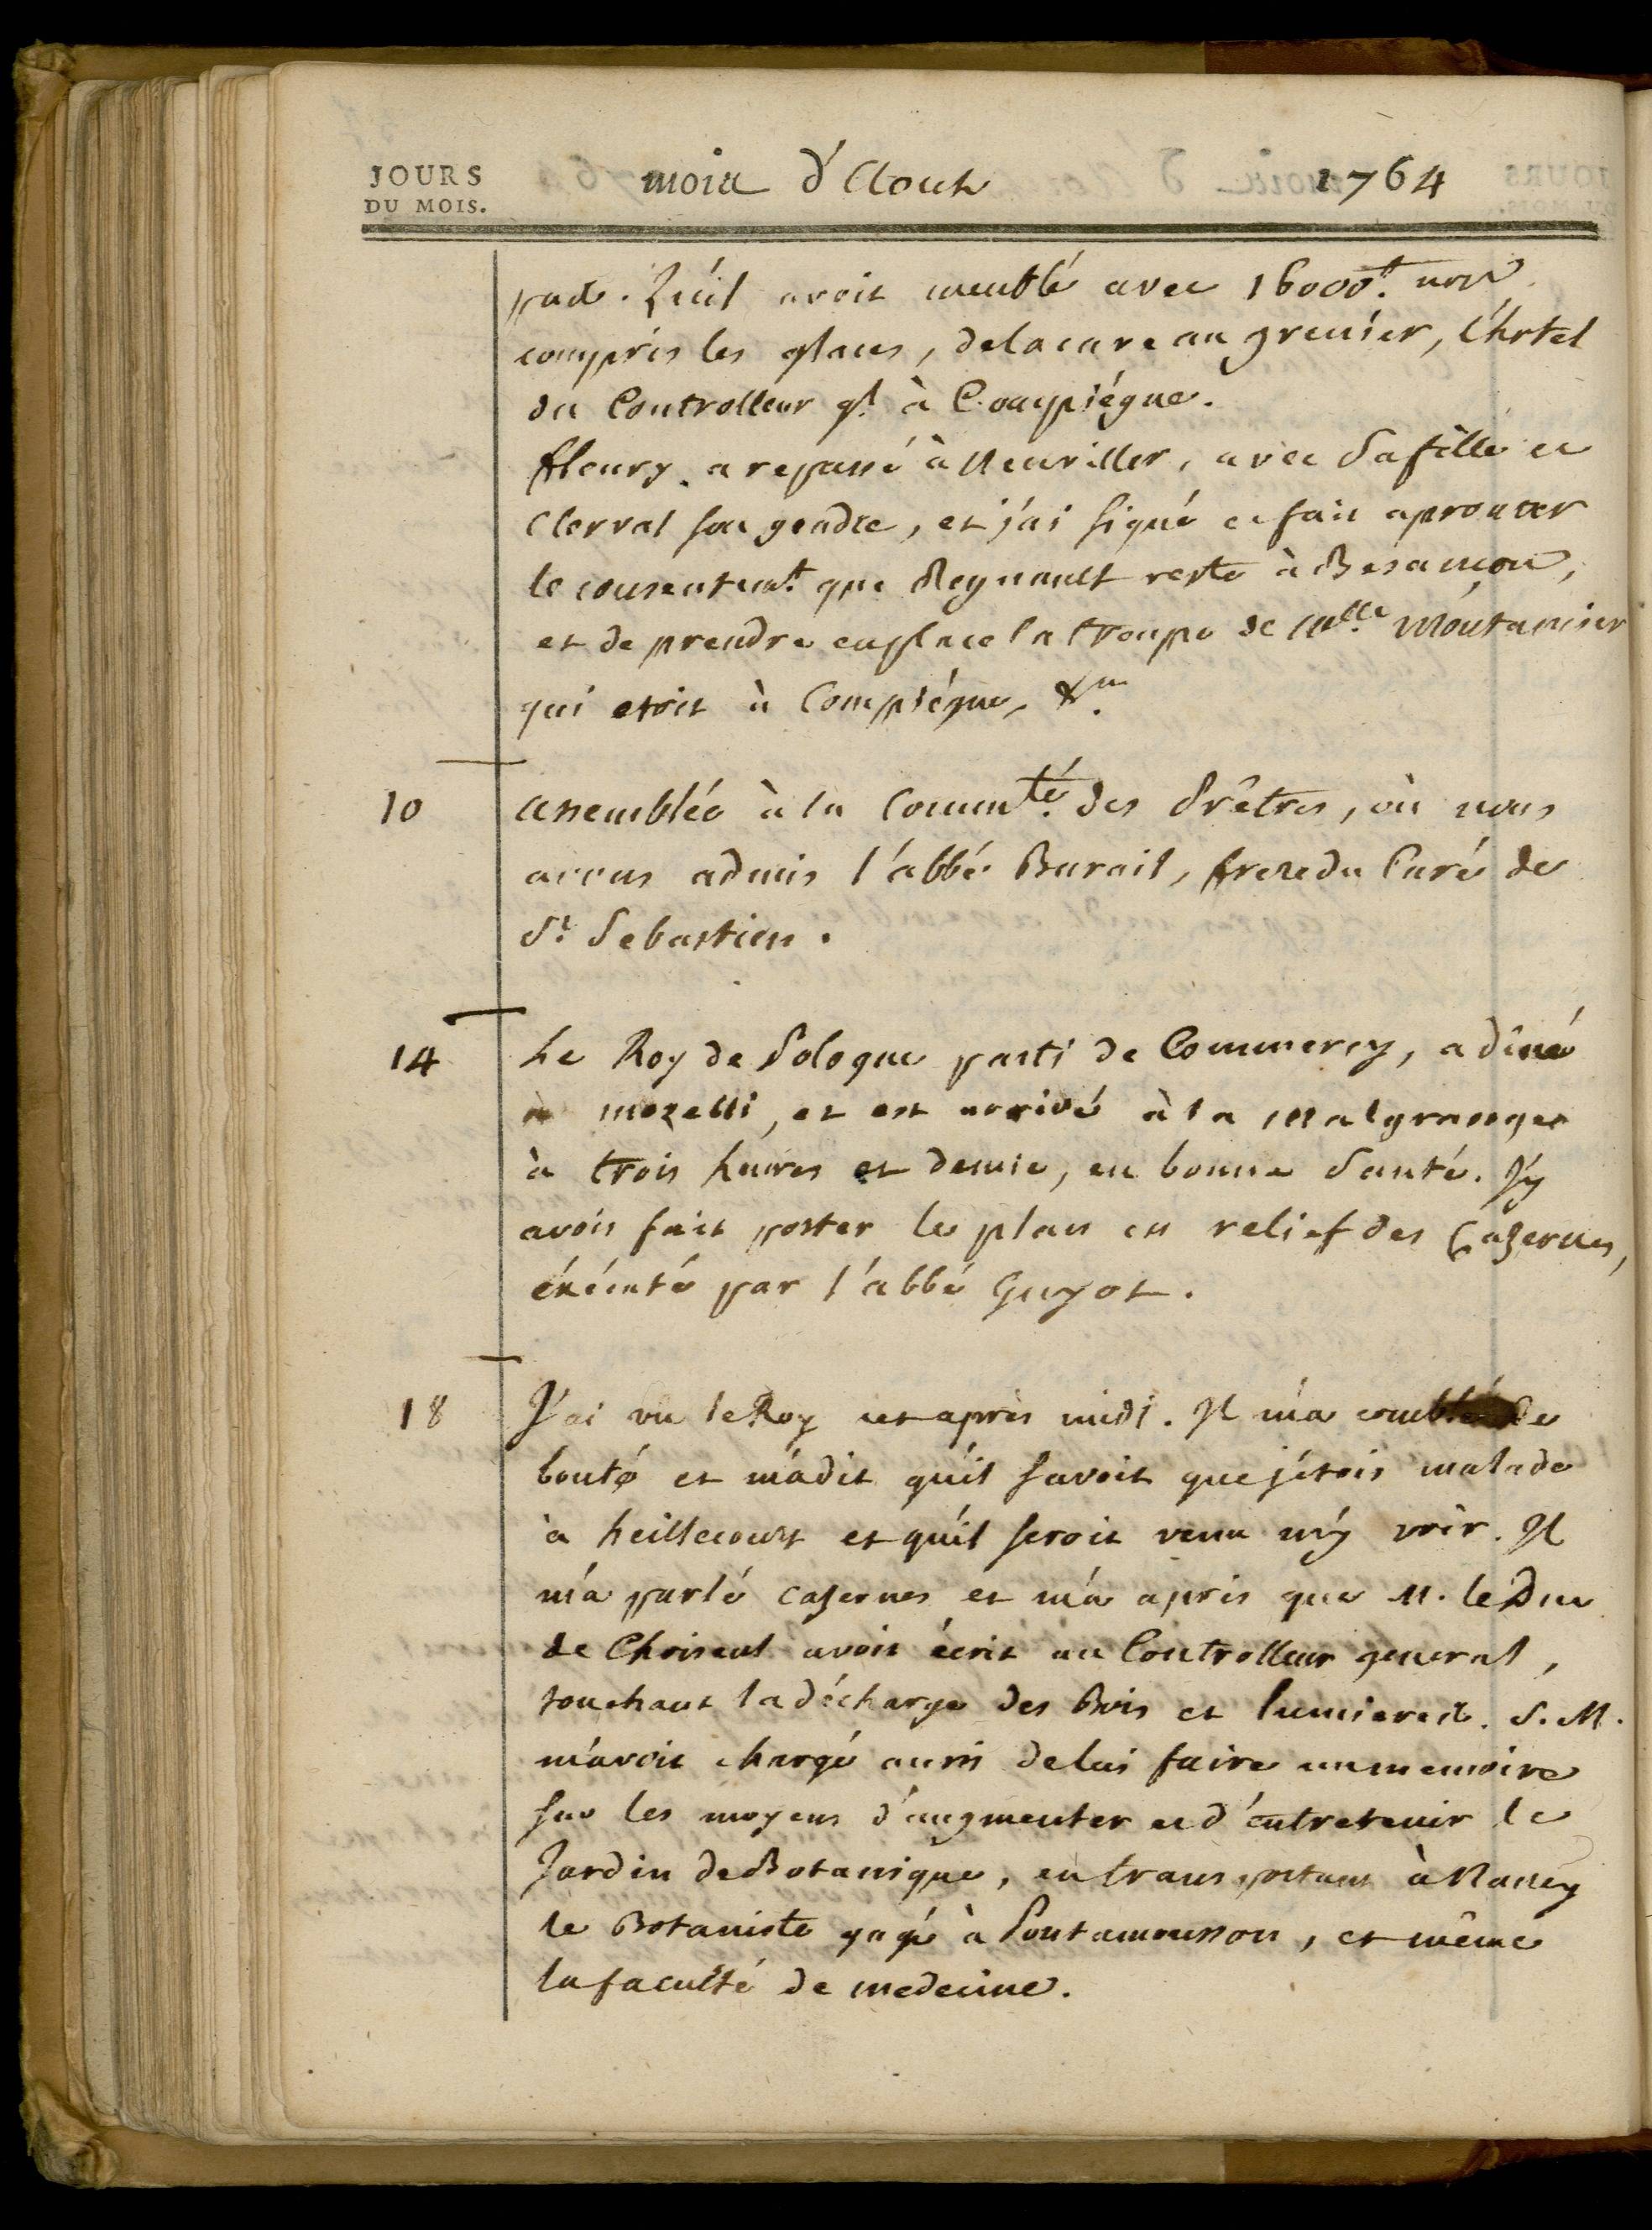 JOURS
DU MOIS.
mois d'Aout 1764
pade. Qu'il avoit meublé avec 16000.# non
compris les glaces, delacave au grenier, l'hotel
du Controlleur gl. à Compiégne.
fleury a repassé à Neuviller, avec Safille et
Clerval son gendre, et j'ai signé et fait aprouver
le consentemt. que Regnault reste à Besançon,
et de prendre enplace la troupe de Mlle. Montansier
qui etoit à Compiégne, &a.
10 assemblée à la Commté. des Prêtres, où nous
avons admis l'abbé Burail, frere du Curé de
St. Sebastien.
14 Le Roy de Pologne parti de Commercy, a diné
à mozelli, et est arrivé à la Malgrange
à trois heures et demie, en bonne Santé. J'y
avois fait porter le plan en relief des Cazernes,
éxécuté par l'abbé Guyot.
18 J'ai vu le Roy cet après midi. Il m'a comblé de
bonté et m'a dit qu'il savoit que j'étois malade
à heillecourt et qu'il seroit venu m'y voir. Il
m'a parlé cazernes et m'a apris que M. le Duc
de Choiseul avoit écrit au Controlleur general,
touchant la décharge des Bois et lumieres. S. M.
m'avoit chargé aussi delui faire un memoire
sur les moyens d'augmenter et d'entretenir le
Jardin de Botanique, en transportant à Nancy
le Botaniste gagé à Pontamousson, et même
la faculté de medecine.